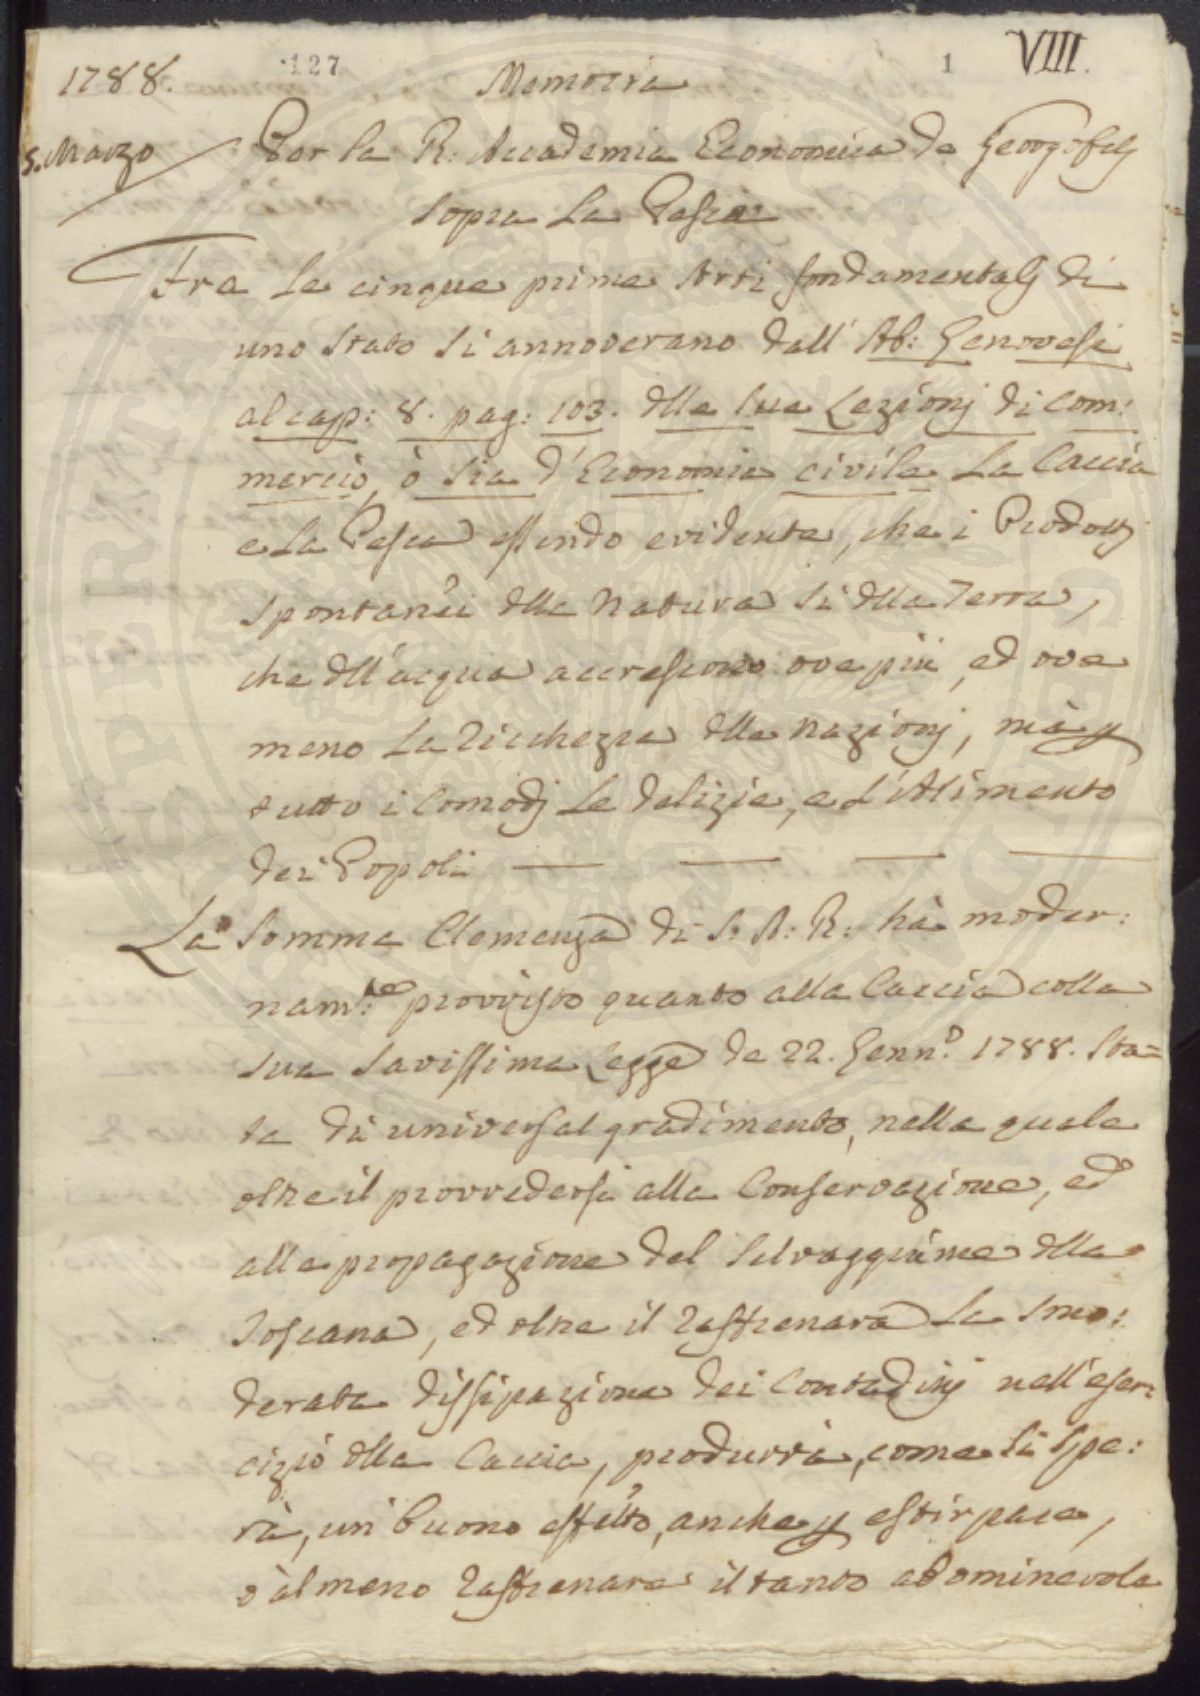 1788. 127 Memoria 1 VIII.
5. Marzo Per la R: Accademia Economica de Georgofilj
sopra La Pesca
Fra Le cinque prime Arti fondamentalj di
uno stato si annoverano dall' Ab: Genovesi
al cap: 8. pag: 103. dlle sue Lezionj di Com:
mercio, ò sia d'Economia civile La Caccia
e La Pesca essendo evidente, che i Prodottj
spontanèi dlla Natura sì dlla Terra,
che dll'acqua accrescono ove più, ed ove
meno La ricchezza dlle Nazionj, mà p
tutto i Comodj Le delizie, e L'Alimento
dei Popoli
La Somma Clemenza di S. A: R: hà moder:
nam:te provvisto quanto alla Caccia colla
sua savissima Legge de 22. Genn:o 1788. sta=
ta di universal gradimento, nella quale
oltre il provvedersi alla Conservazione, ed
alla propagazione del selvaggiùme dlla
Toscana, ed oltre il raffrenare La smo:
derata dissipazione dei Contadinj nell'eser:
cizio dlla Caccia, produrrà, come si spe:
ra, un buono effètto, anche p estirpare,
ò àlmeno raffrenare il tanto abominevole